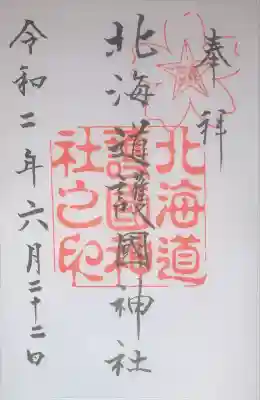 奉拝
北海道護國神社
北海道
護國神
社之印
令和二年六月二十二日